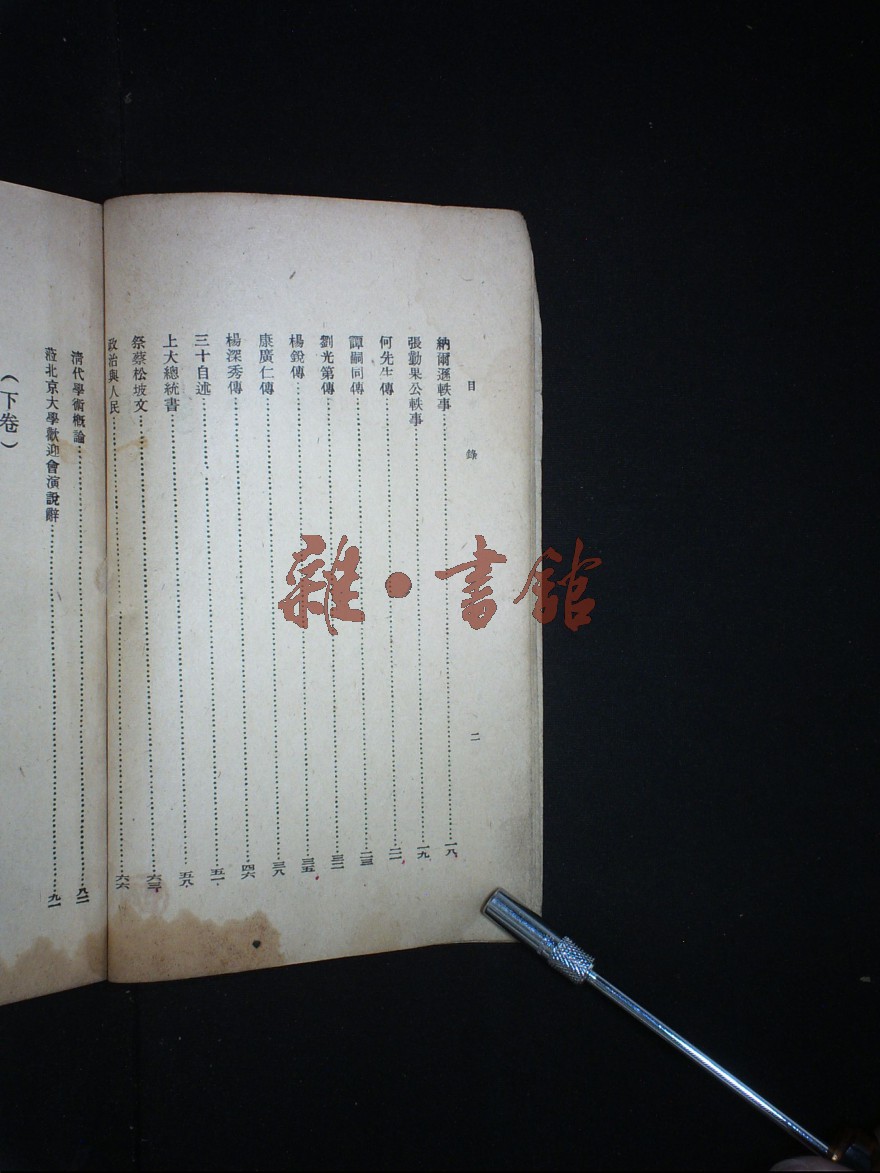 目錄 二
納爾遜軼事 一八
張勤果公軼事 一九
何先生傳 二一
譚嗣同傳 二三
劉光第傳 三二
楊銳傳 三五
康廣仁傳 三八
楊深秀傳 四六
三十自述 五一
上大總統書 五八
祭蔡松坡文 六三
政治與人民 六六
清代學術概論 八二
蒞北京大學歡迎會演說辭 九一
（下卷）
雜·書館